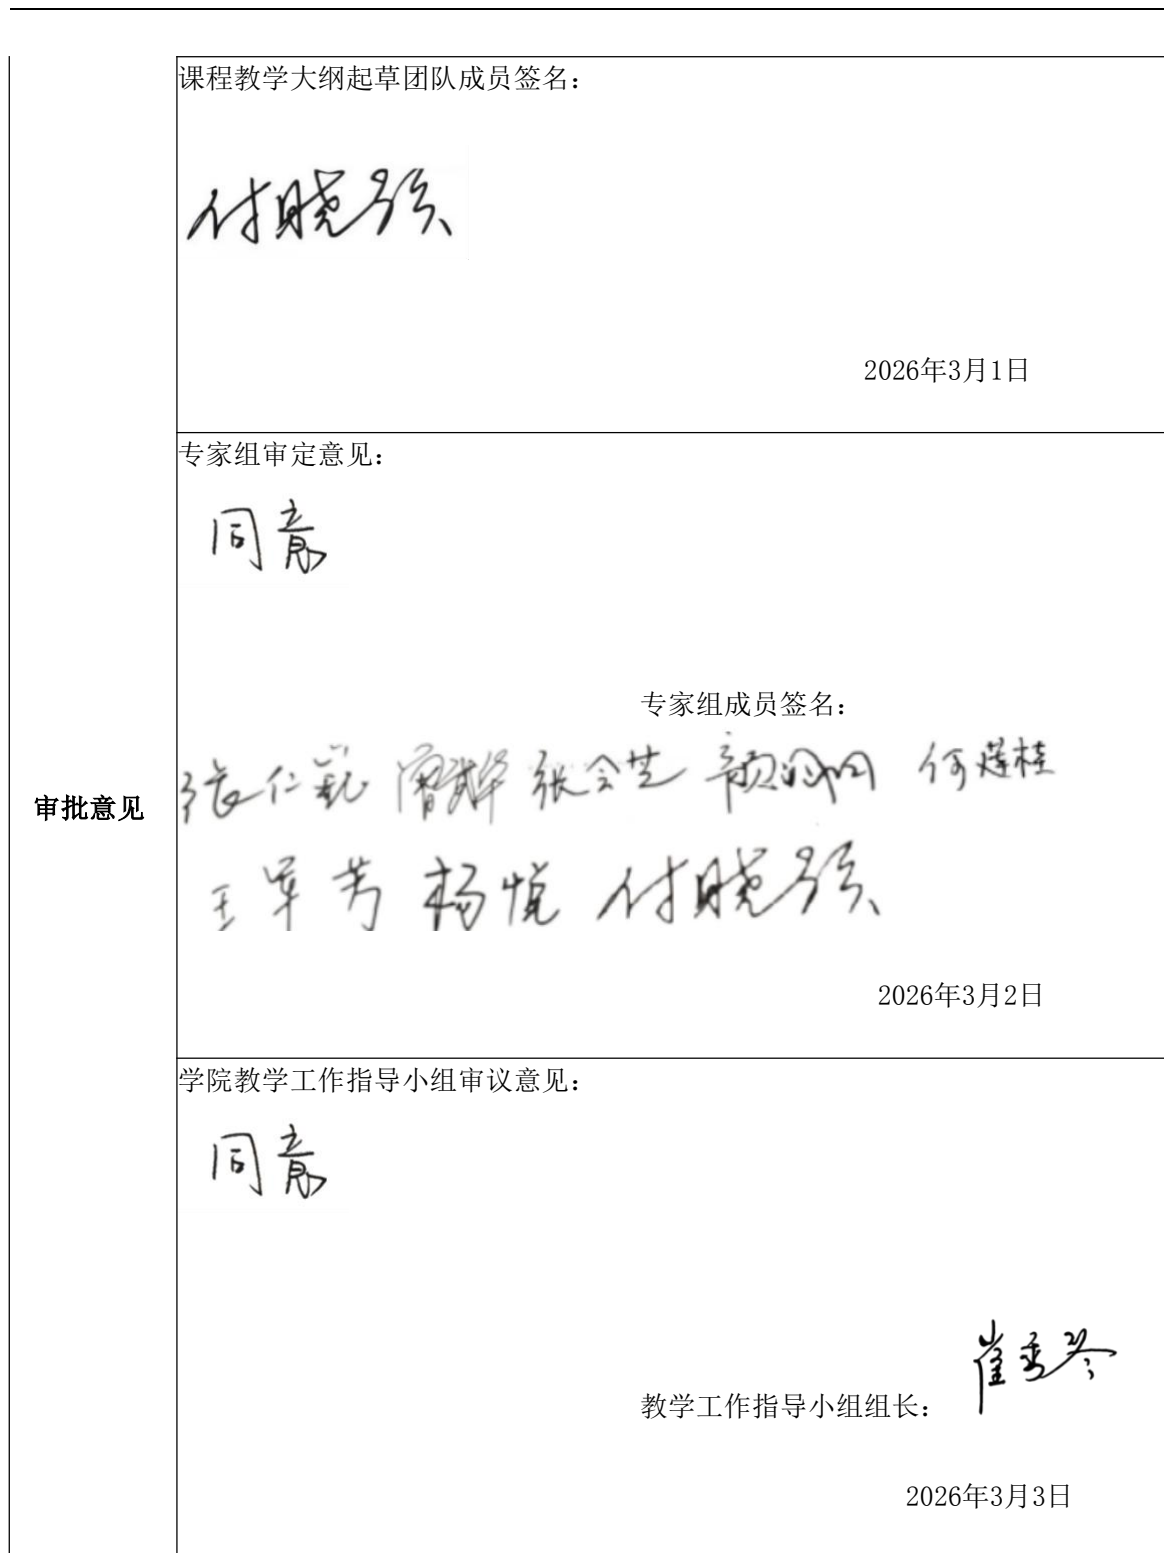 课程教学大纲起草团队成员签名：
付晓强
2026年3月1日
专家组审定意见：
同意
专家组成员签名：
张仁 张会芝 何莲桂
王军芳 杨悦 付晓强
2026年3月2日
审批意见
学院教学工作指导小组审议意见：
同意
崔秀琴
教学工作指导小组组长：
2026年3月3日